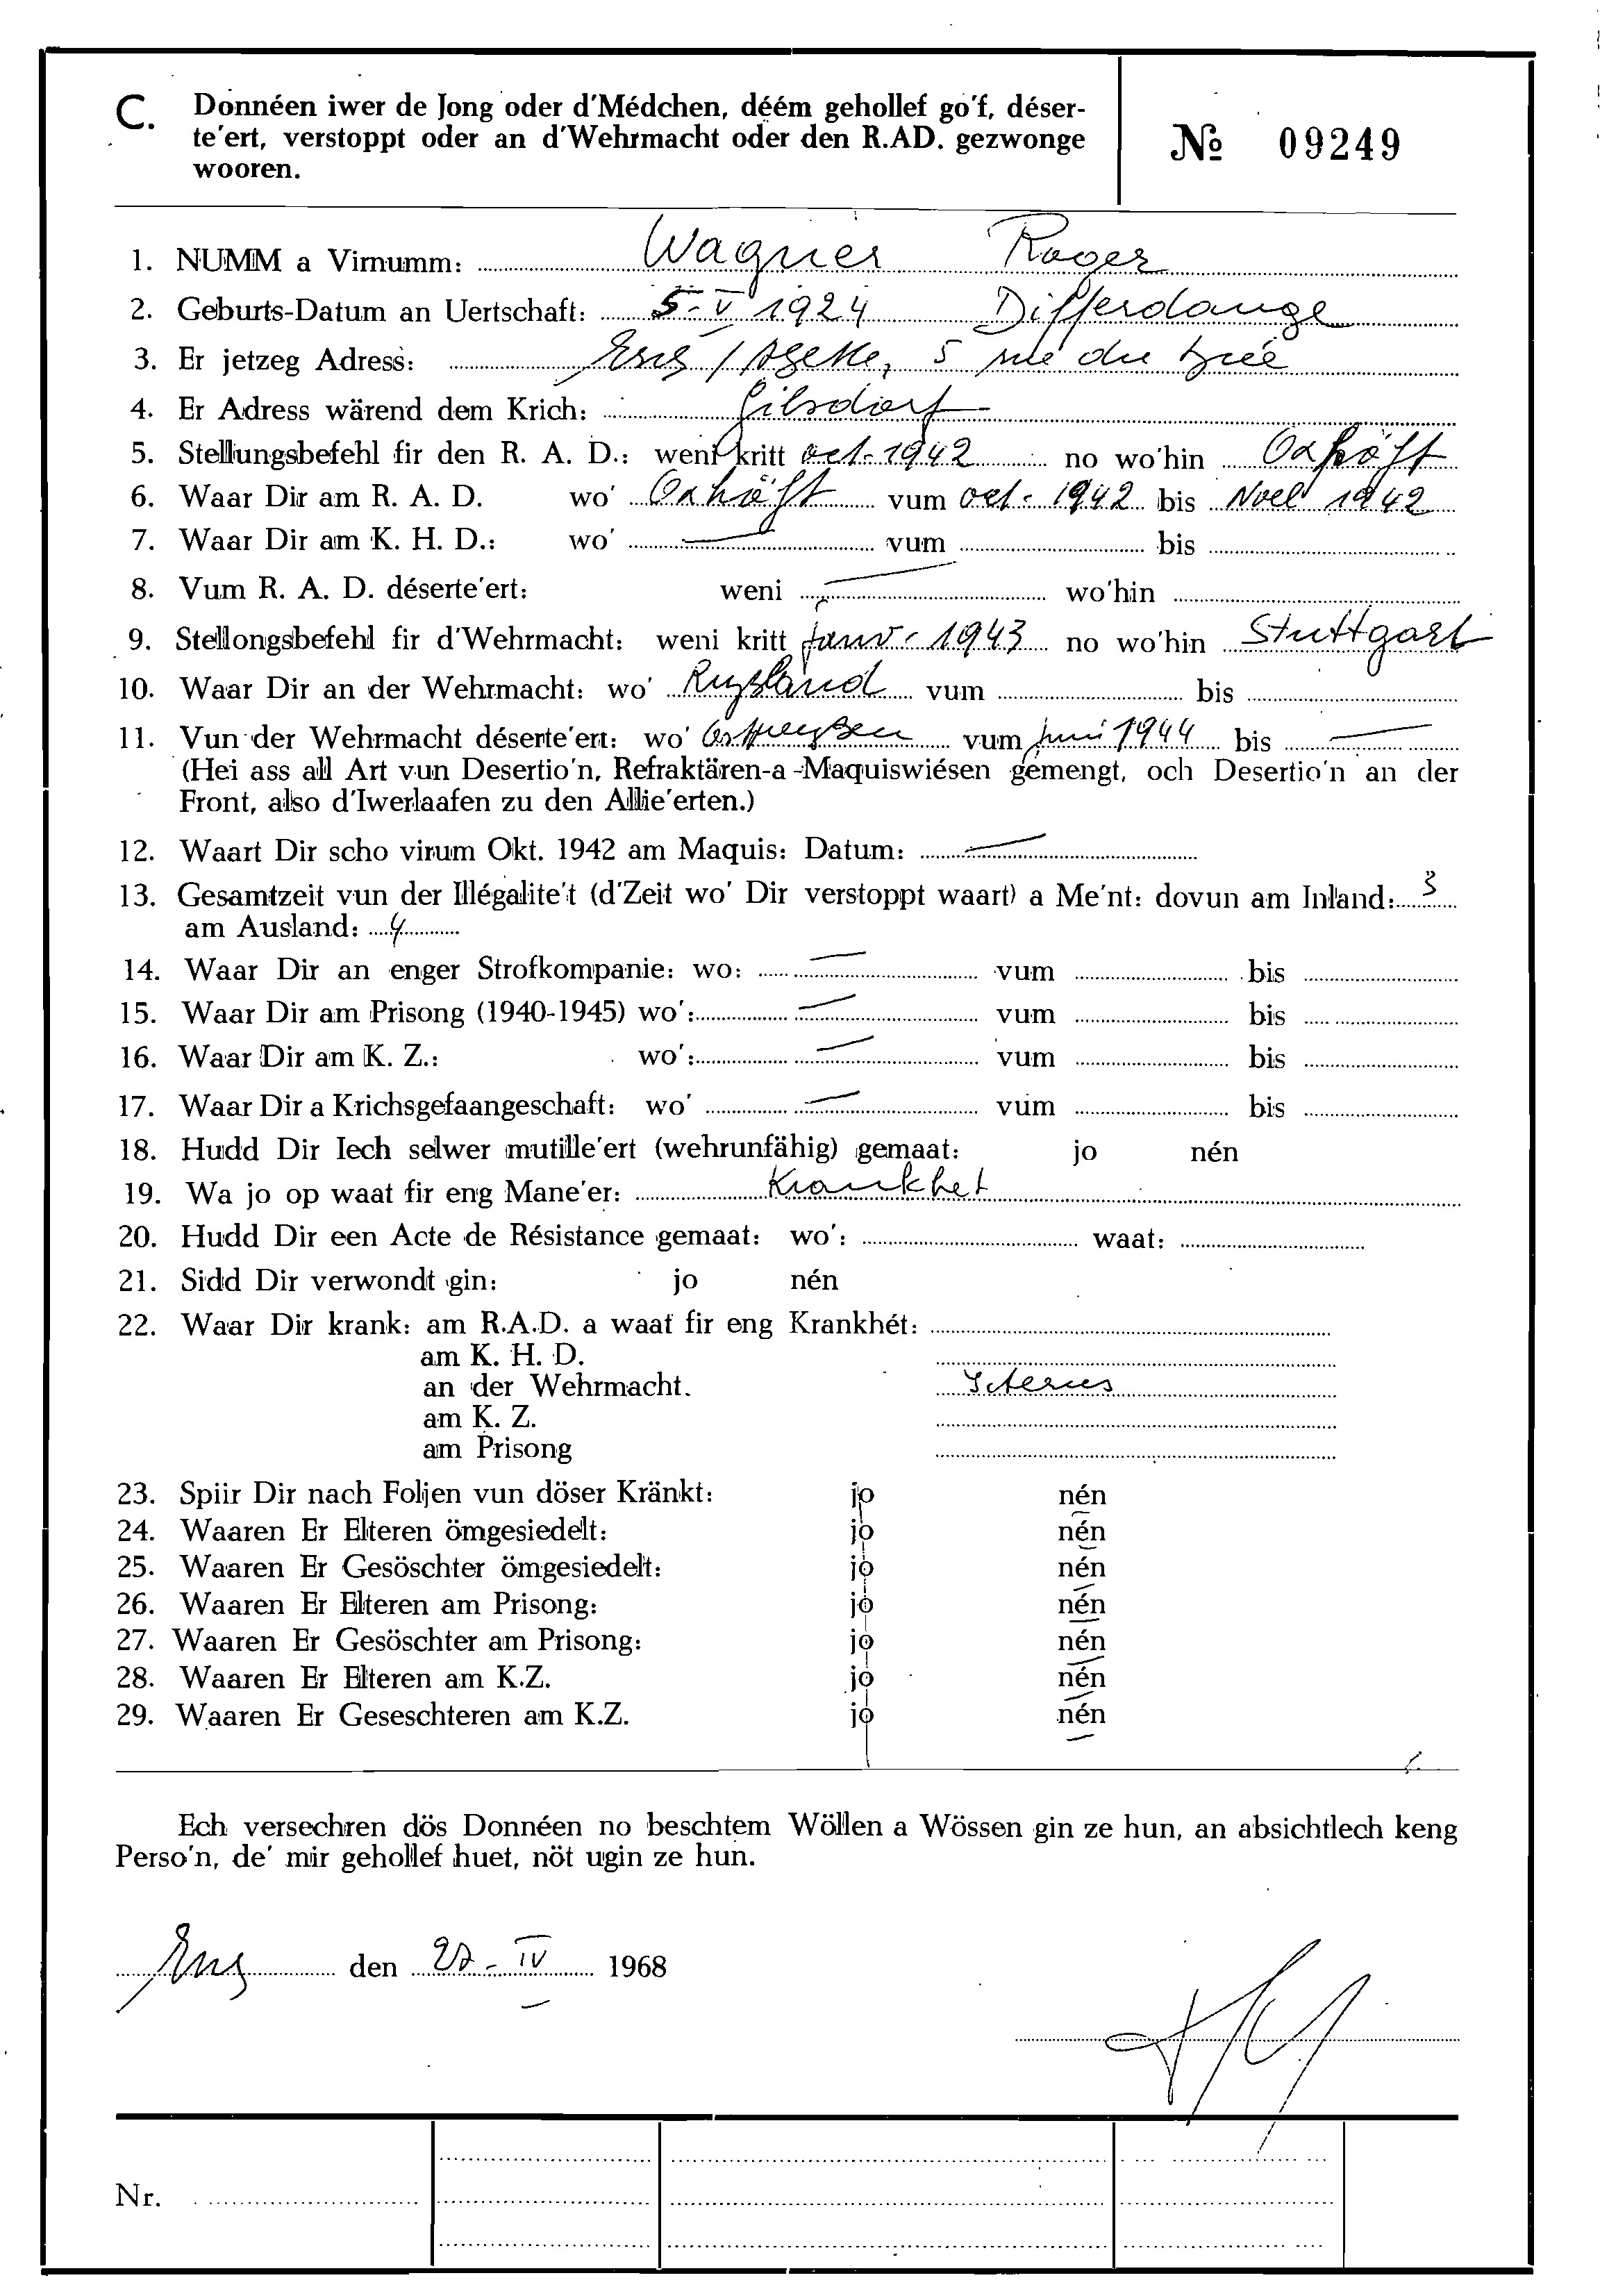 C. Donnéen iwer de Jong oder d'Médchen, déém gehollef go'f, déser-
te'ert, verstoppt oder an d'Wehrmacht oder den R.AD. gezwonge
wooren.
№ 09249
1. NUMM a Virnumm: Wagner Roger
2. Geburts-Datum an Uertschaft: 5-V 1924 Differdange
3. Er jetzeg Adress: 5 rue du
4. Er Adress wärend dem Krich: Gilsdorf
5. Stellungsbefehl fir den R. A. D.: weni kritt oct. 1942 no wo'hin Oxhöft
6. Waar Dir am R. A. D. wo' Oxhöft vum oct. 1942 bis Noel 1942
7. Waar Dir am K. H. D.: wo' — vum bis
8. Vum R. A. D. déserte'ert: weni — wo'hin
9. Stellongsbefehl fir d'Wehrmacht: weni kritt Janv. 1943 no wo'hin Stuttgart
10. Waar Dir an der Wehrmacht: wo' Rußland vum bis
11. Vun der Wehrmacht déserte'ert: wo' Ostpreußen vum Juni 1944 bis —
(Hei ass all Art vun Desertio'n, Refraktären-a-Maquiswiésen gemengt, och Desertio'n an der
Front, also d'Iwerlaafen zu den Allie'erten.)
12. Waart Dir scho virum Okt. 1942 am Maquis: Datum: —
13. Gesamtzeit vun der Illégalite't (d'Zeit wo' Dir verstoppt waart) a Me'nt: dovun am Inland: 3
am Ausland: 4
14. Waar Dir an enger Strofkompanie: wo: — vum bis
15. Waar Dir am Prisong (1940-1945) wo': — vum bis
16. Waar Dir am K. Z.: wo': — vum bis
17. Waar Dir a Krichsgefaangeschaft: wo' — vum bis
18. Hudd Dir Iech selwer mutille'ert (wehrunfähig) gemaat: jo nén
19. Wa jo op waat fir eng Mane'er: Krankhet
20. Hudd Dir een Acte de Résistance gemaat: wo': waat:
21. Sidd Dir verwondt gin: jo nén
22. Waar Dir krank: am R.A.D. a waat fir eng Krankhét:
am K. H. D.
an der Wehrmacht. Icterus
am K. Z.
am Prisong
23. Spiir Dir nach Foljen vun döser Kränkt: jo nén
24. Waaren Er Elteren ömgesiedelt: jo nén
25. Waaren Er Gesöschter ömgesiedelt: jo nén
26. Waaren Er Elteren am Prisong: jo nén
27. Waaren Er Gesöschter am Prisong: jo nén
28. Waaren Er Elteren am K.Z. jo nén
29. Waaren Er Geseschteren am K.Z. jo nén
Ech versechren dös Donnéen no beschtem Wöllen a Wössen gin ze hun, an absichtlech keng
Perso'n, de' mir gehollef huet, nöt ugin ze hun.
den IV 1968
Nr.